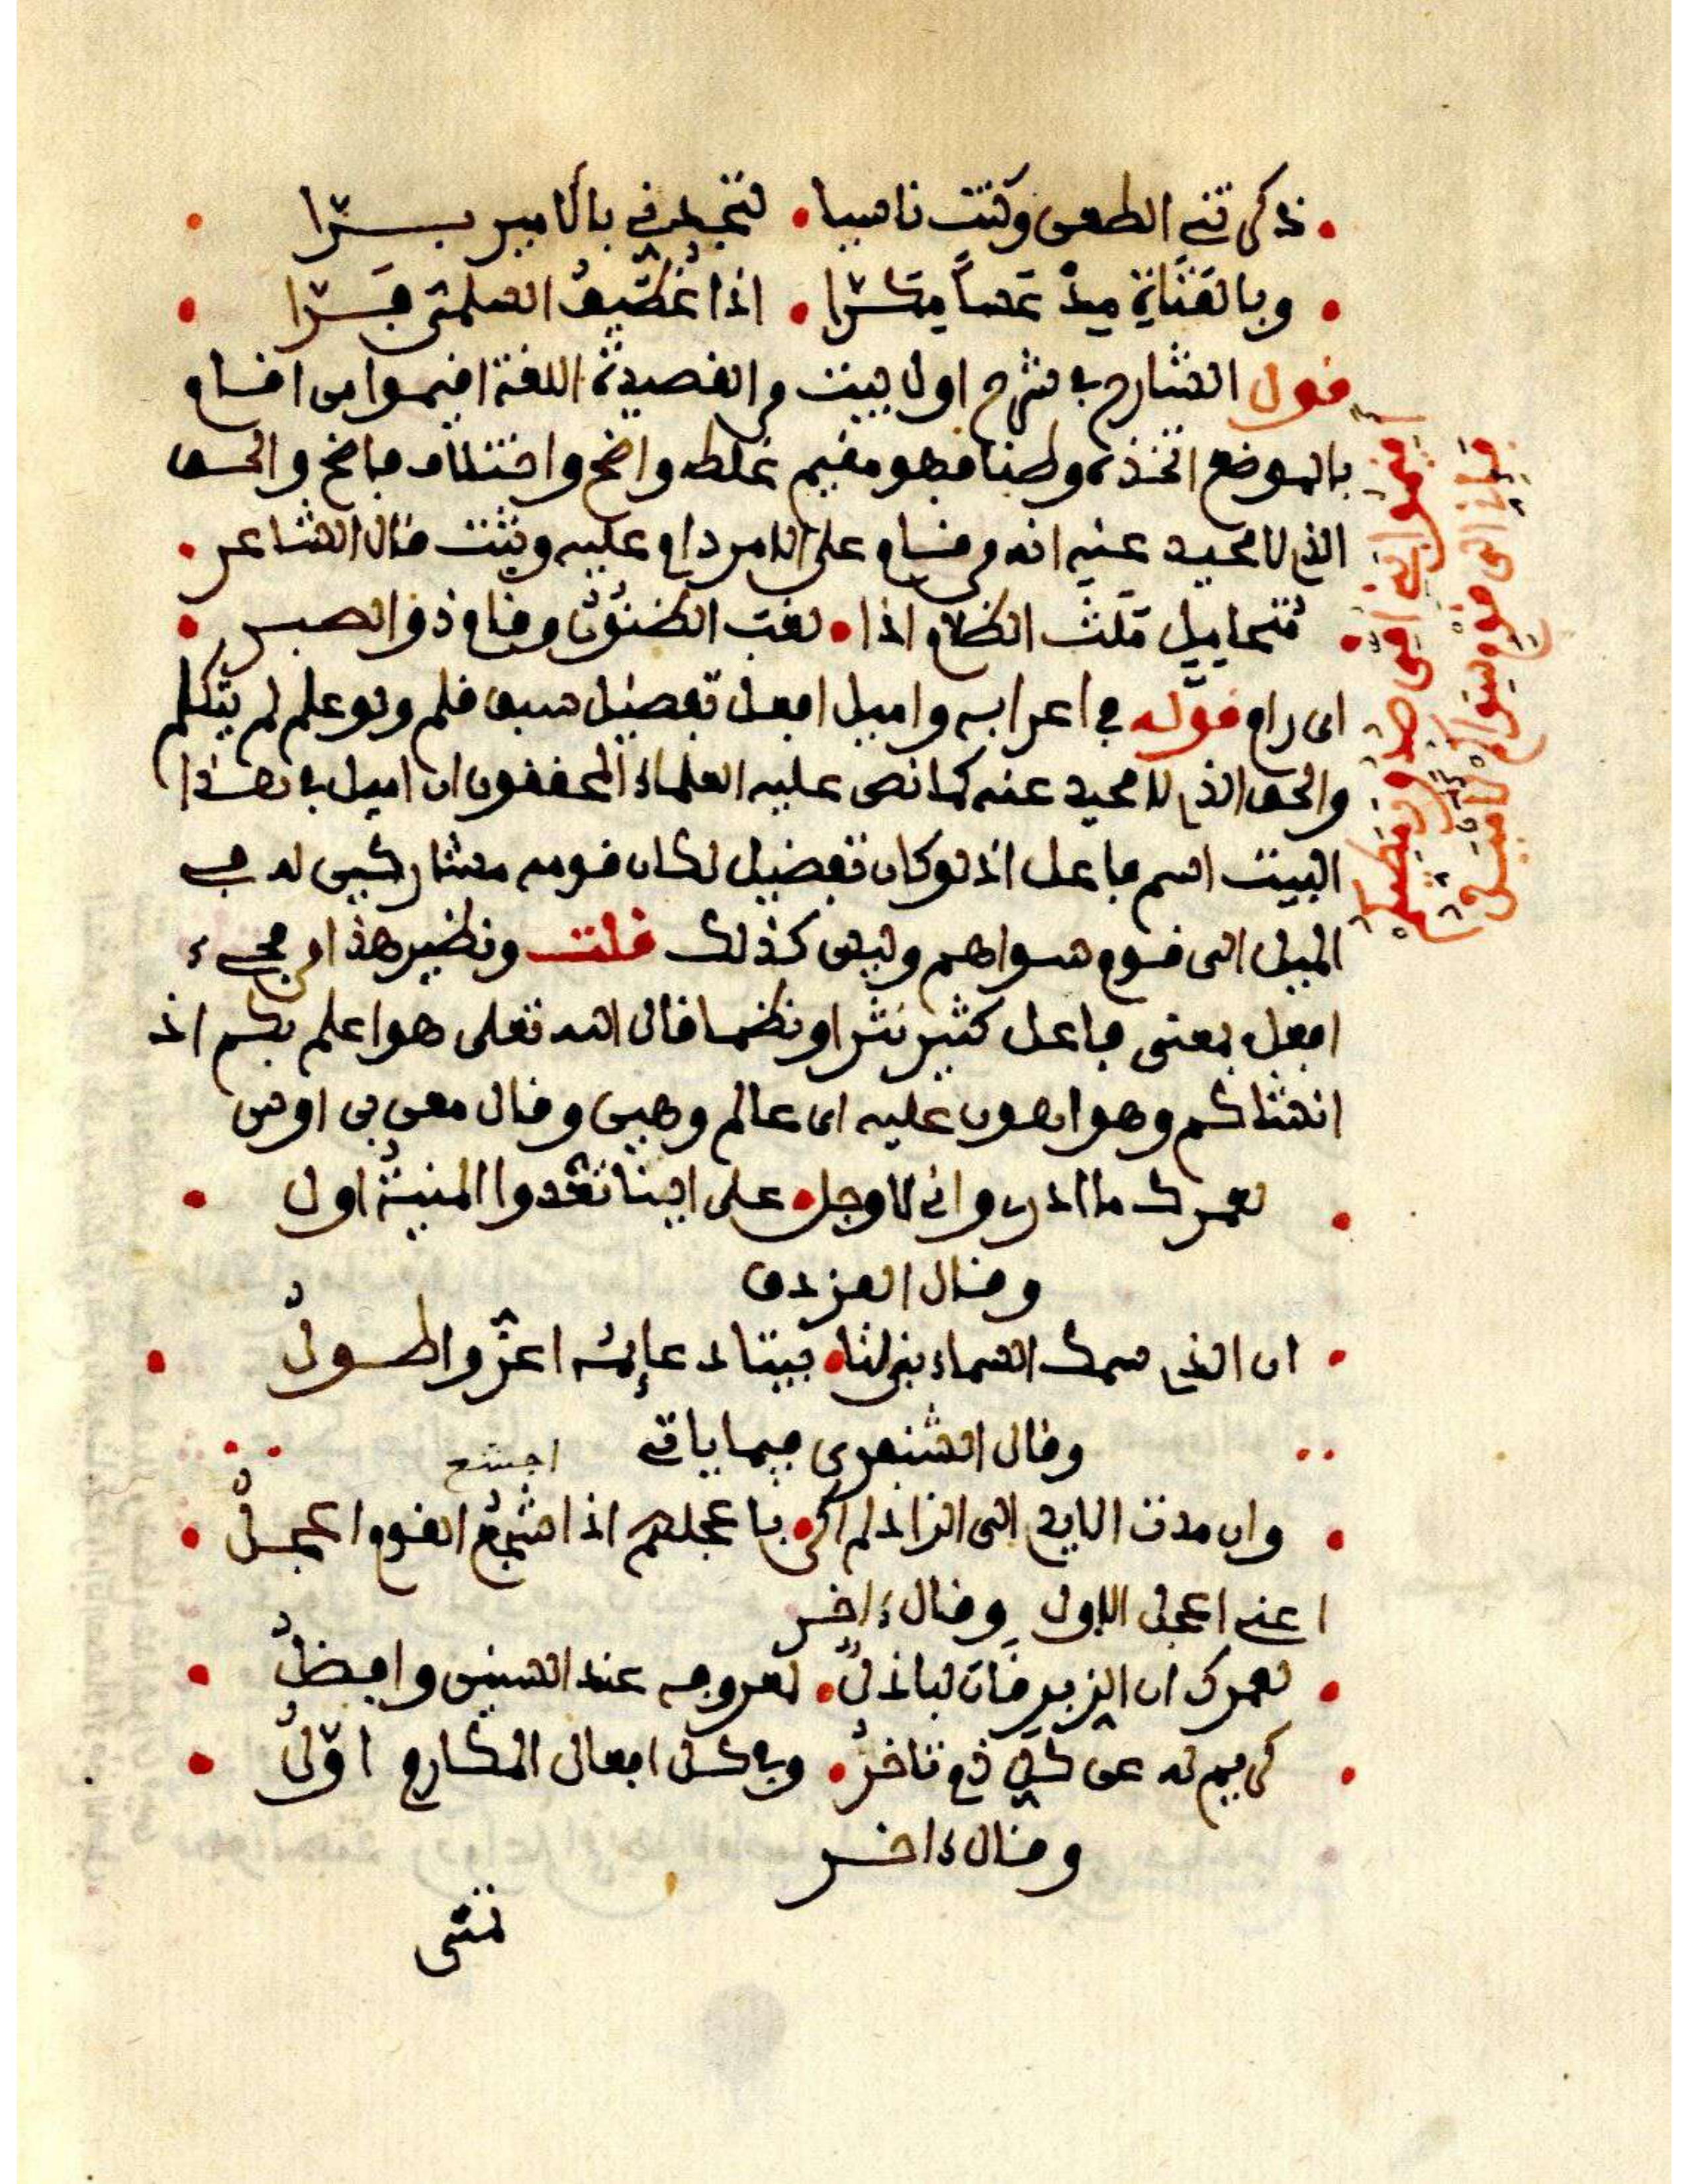 ذكرتني الطعن وكنت ناسيا • لتجدني بالامير برّا
وبالقناة مدعسا مكرّا • اذا غطيف السلمي فرّا
قول الشارح في شرح اول بيت من القصيدة اللغة اقيموا من اقام
بالموضع اتخذه وطنا فهو مقيم غلط واضح واختلاف فاضح والحق
الذي لا محيد عنه انه من قام على الامر دام عليه وثبت قال الشاعر •
الظلام اذا • لغب الظنون وقام ذو الصبر
اى دام قوله في اعرابه واميل افعل تفضيل سبق قلم ولو علم لم يتكلم
والحق الذي لا محيد عنه كما نص عليه العلماء المحققون ان اميل في هذا
البيت اسم فاعل اذ لو كان تفضيل لكان قومه مشاركين له في
الميل الى قوم سواهم وليس كذلك قلت ونظير هذا من مجيء
افعل بمعنى فاعل كثير نثرا ونظما قال الله تعلى هو اعلم بكم اذ
انشاكم وهو اهون عليه اى عالم وهين وقال معن بن اوس
لعمرك ما ادرى وانى لاوجل • على اينا تغدوا المنية اول
وقال الفرزدق
ان الذي سمك السماء بنى لنا • بيتا دعائمه اعزّ واطول
وقال الشنفرى فيما ياتي
اجشع
وان مدت الايدي الى الزاد لم اكن • باعجلهم اذ اشجع القوم اعجل
اعني اعجل الاول وقال ءاخر
لعمرك ان الزبرقان لباذل • لمعروفه عند السنين وافضل
كريم له عن كل ذم تاخر • وفي كل افعال المكارم اوّل
وقال ءاخر
تمنى
اقيموا بني امى صدور مطيكم
فانى الى قوم سواكم لاميل